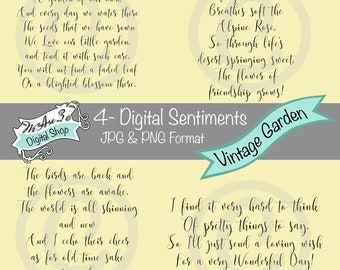 A garden of our own,
And every day we water there
The seeds that we have sown
We Love our little garden,
and tend it with such care,
You will not find a faded leaf
Or a blighted blossom there.
Breathes soft the
Alpine Rose,
So through life's
desert springing sweet,
The flower of
friendship grows!
Digital Shop
4- Digital Sentiments
JPG & PNG Format
Vintage Garden
The birds are back and
the flowers are awake.
The world is all shinning
and new
And I echo their cheers
as for old time sake
I find it very hard to think
Of pretty things to say,
So I'll just send a loving wish
For a very Wonderful Day!